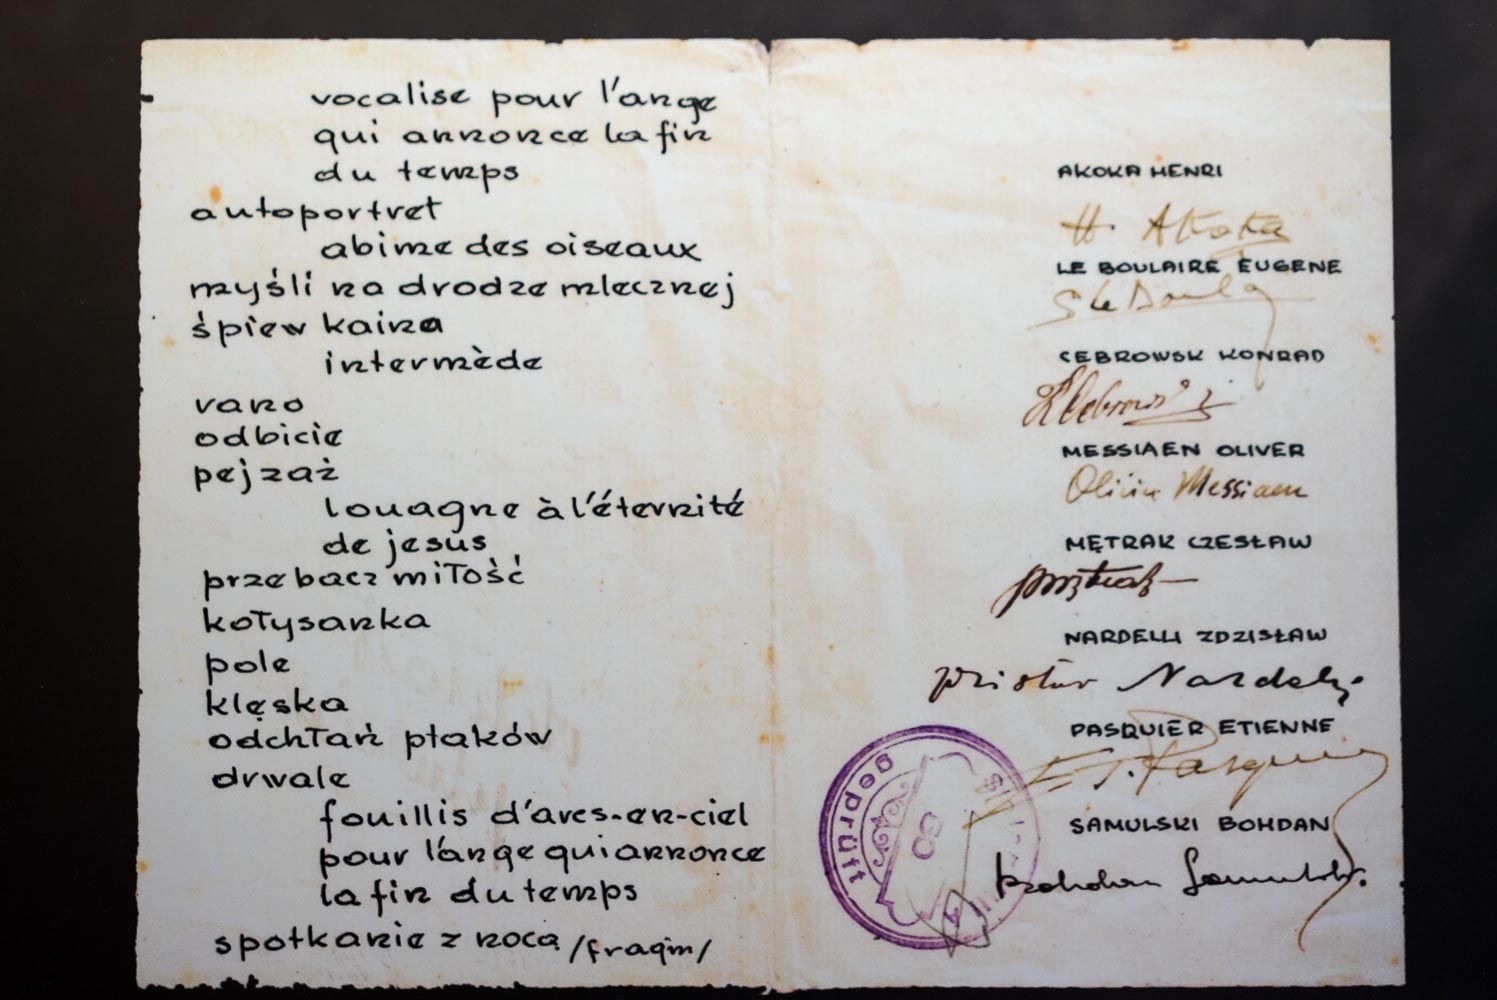 vocalise pour l'ange
qui annonce la fin
du temps
autoportret
abime des oiseaux
myśli na drodze mlecznej
śpiew kaina
intermède
rano
odbicie
pejzaż
louagne à l'éternité
de jesus
przebacz miłość
kołysanka
pole
klęska
odchłań ptaków
drwale
fouillis d'arcs-en-ciel
pour l'ange qui annonce
la fin du temps
spotkanie z nocą /fragm/
AKOKA HENRI
H. Akoka
LE BOULAIRE EUGENE
CEBROWSK KONRAD
MESSIAEN OLIVER
Olivier Messiaen
MĘTRAK CZESŁAW
NARDELLI ZDZISŁAW
Nardelli
PASQUIER ETIENNE
Et. Pasquier
SAMULSKI BOHDAN
Bohdan Samulski
geprüft